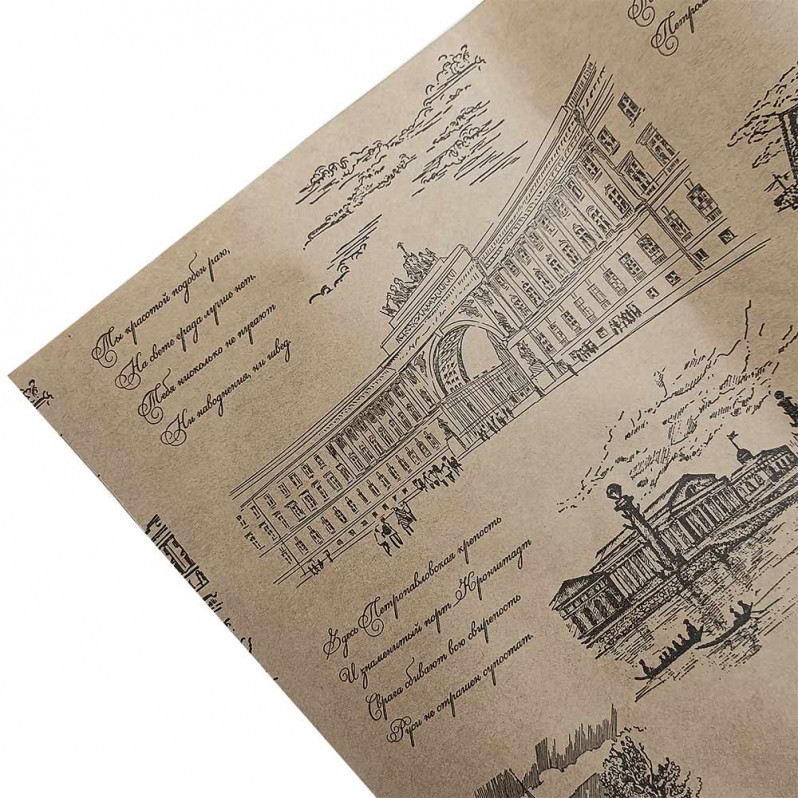 Петром
Ты красотой подобен раю,
На свете града лучше нет.
Тебя нисколько не пугают
Ни наводнения, ни швед
Здесь Петропавловская крепость
И знаменитый порт Кронштадт
С врага сбивают всю свирепость
Руси не страшен супостат.